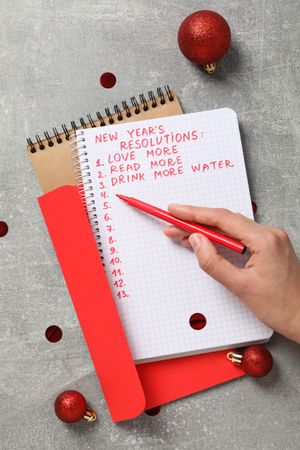 NEW YEAR'S
RESOLUTIONS:
1. LOVE MORE
2. READ MORE
3. DRINK MORE WATER
4.
5.
6.
7.
8.
9.
10.
11.
12.
13.